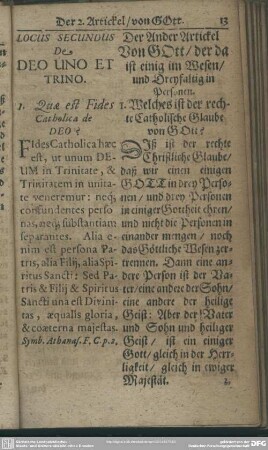 Der 2. Artickel/von GOtt. 13
LOCUS SECUNDUS
De
DEO UNO ET
TRINO.
1. Quæ est Fides
Catholica de
DEO?
FIdes Catholica hæc
est, ut unum DE-
UM in Trinitate, &
Trinitatem in unita-
te veneremur: neq;
confundentes perso-
nas, neq; substantiam
separantes. Alia e-
nim est persona Pa-
tris, alia Filij, alia Spi-
ritus Sancti: Sed Pa-
tris & Filij & Spiritus
Sancti una est Divini-
tas, æqualis gloria,
& coæterna majestas.
Symb. Athanas. F. C. p. 2.
Der Ander Artickel
Von GOtt/ der da
ist einig im Wesen/
und Dreyfaltig in
Personen.
1. Welches ist der rech-
te Catholische Glaube
von GOtt?
DIß ist der rechte
Christliche Glaube/
daß wir einen einigen
GOTT in drey Perso-
nen/ und drey Personen
in einiger Gottheit ehren/
und nicht die Personen in
einander mengen/ noch
das Göttliche Wesen zer-
trennen. Dann eine an-
dere Person ist der Va-
ter/ eine andere der Sohn/
eine andere der heilige
Geist: Aber der Vater
und Sohn und heiliger
Geist/ ist ein einiger
Gott/ gleich in der Herr-
ligkeit/ gleich in ewiger
Majestät.